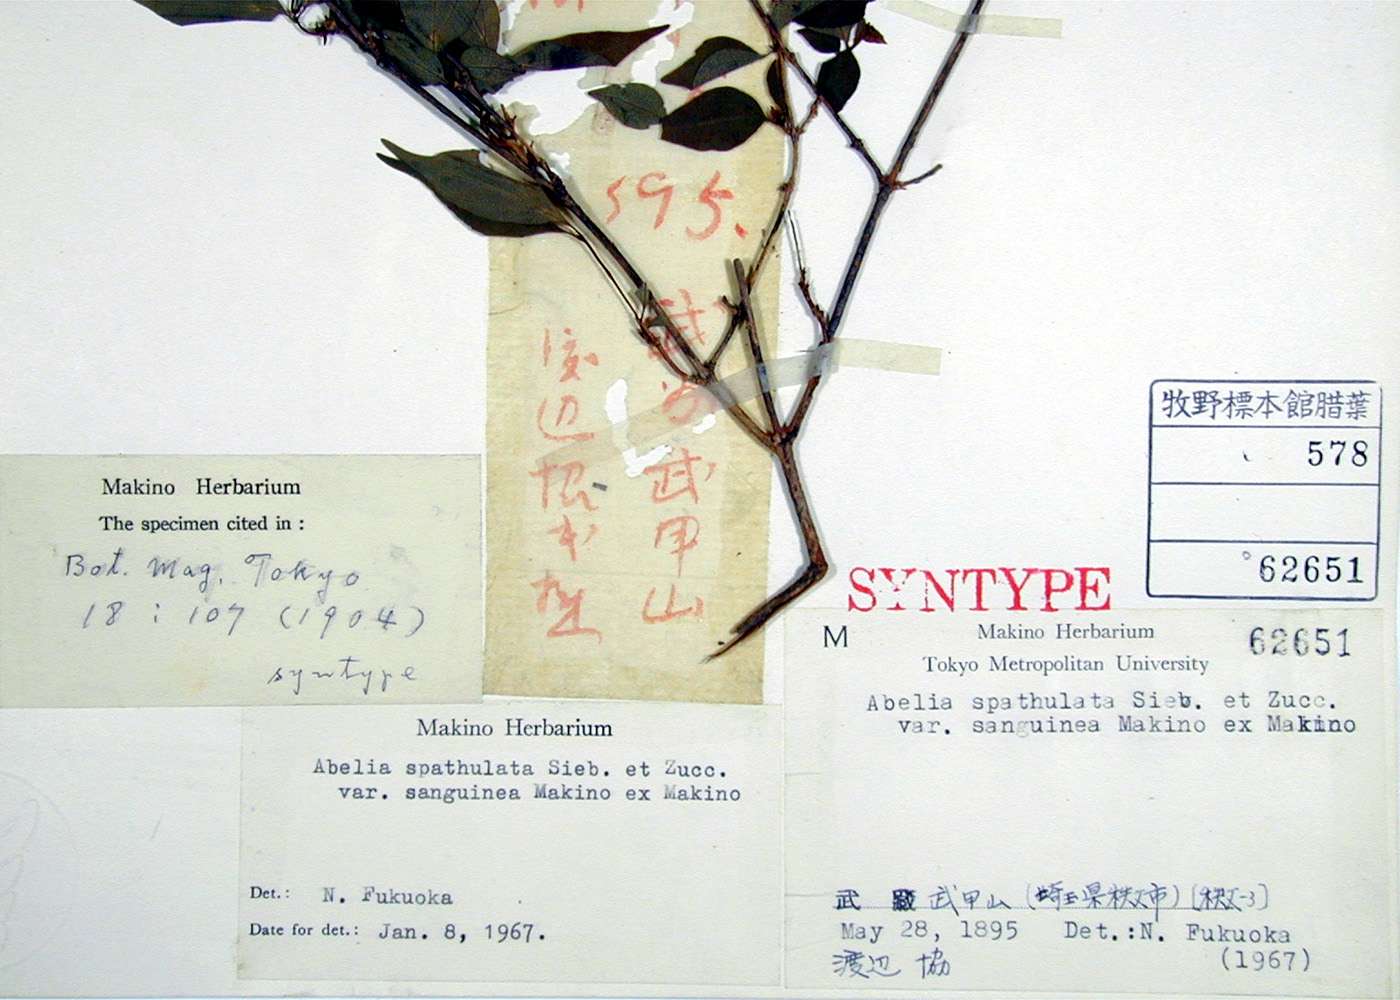 595.
武甲山
牧野標本館腊葉
578
62651
Makino Herbarium
The specimen cited in :
Bot. Mag. Tokyo
18 : 107 (1904)
syntype
SYNTYPE
M
Makino Herbarium
62651
Tokyo Metropolitan University
Abelia spathulata Sieb. et Zucc.
var. sanguinea Makino ex Makino
武 武甲山 (埼玉県秩父市) [秩父-3]
May 28, 1895 Det.:N. Fukuoka
渡辺 協 (1967)
Makino Herbarium
Abelia spathulata Sieb. et Zucc.
var. sanguinea Makino ex Makino
Det.: N. Fukuoka
Date for det.: Jan. 8, 1967.